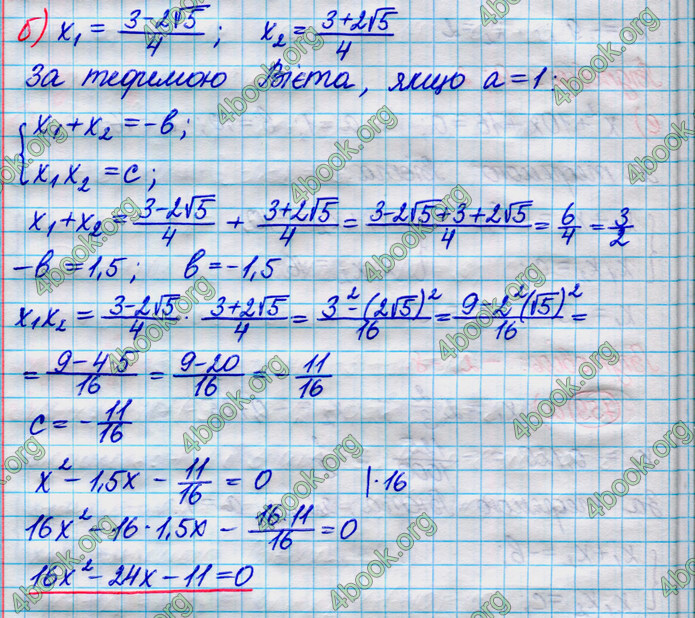 б) x₁ = (3-2√5)/4; x₂ = (3+2√5)/4
За теоремою Вієта, якщо a=1:
{x₁+x₂=-в;
x₁x₂=c;
x₁+x₂ = (3-2√5)/4 + (3+2√5)/4 = (3-2√5+3+2√5)/4 = 6/4 = 3/2
-в = 1,5; в = -1,5
x₁x₂ = (3-2√5)/4 · (3+2√5)/4 = (3²-(2√5)²)/16 = (9-2²(√5)²)/16 =
= (9-4·5)/16 = (9-20)/16 = -11/16
c = -11/16
x² - 1,5x - 11/16 = 0 |·16
16x² - 16·1,5x - (16·11)/16 = 0
16x² - 24x - 11 = 0
4book.org